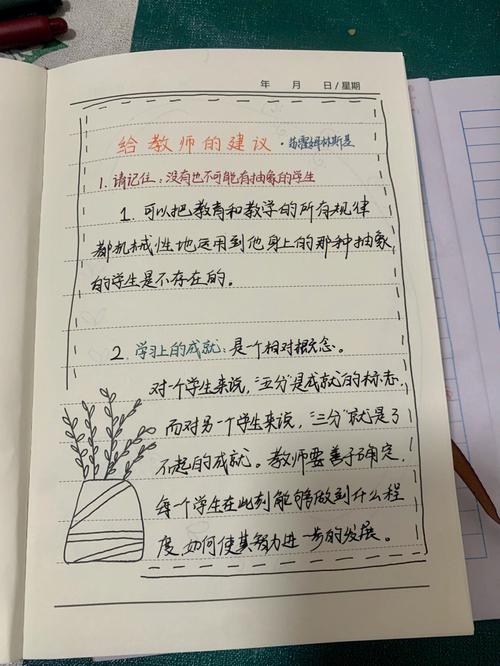 年 月 日/星期
给教师的建议·苏霍姆林斯基
1. 请记住:没有也不可能有抽象的学生
1. 可以把教育和教学的所有规律
都机械性地运用到他身上的那种抽象
的学生是不存在的。
2. 学习上的成就:是一个相对概念。
对个学生来说,“五分”是成就的标志,
而对另一个学生来说,“三分”就是了
不起的成就。教师要善于确定,
每个学生在此刻能够做到什么程
度,如何使其智力进一步的发展。